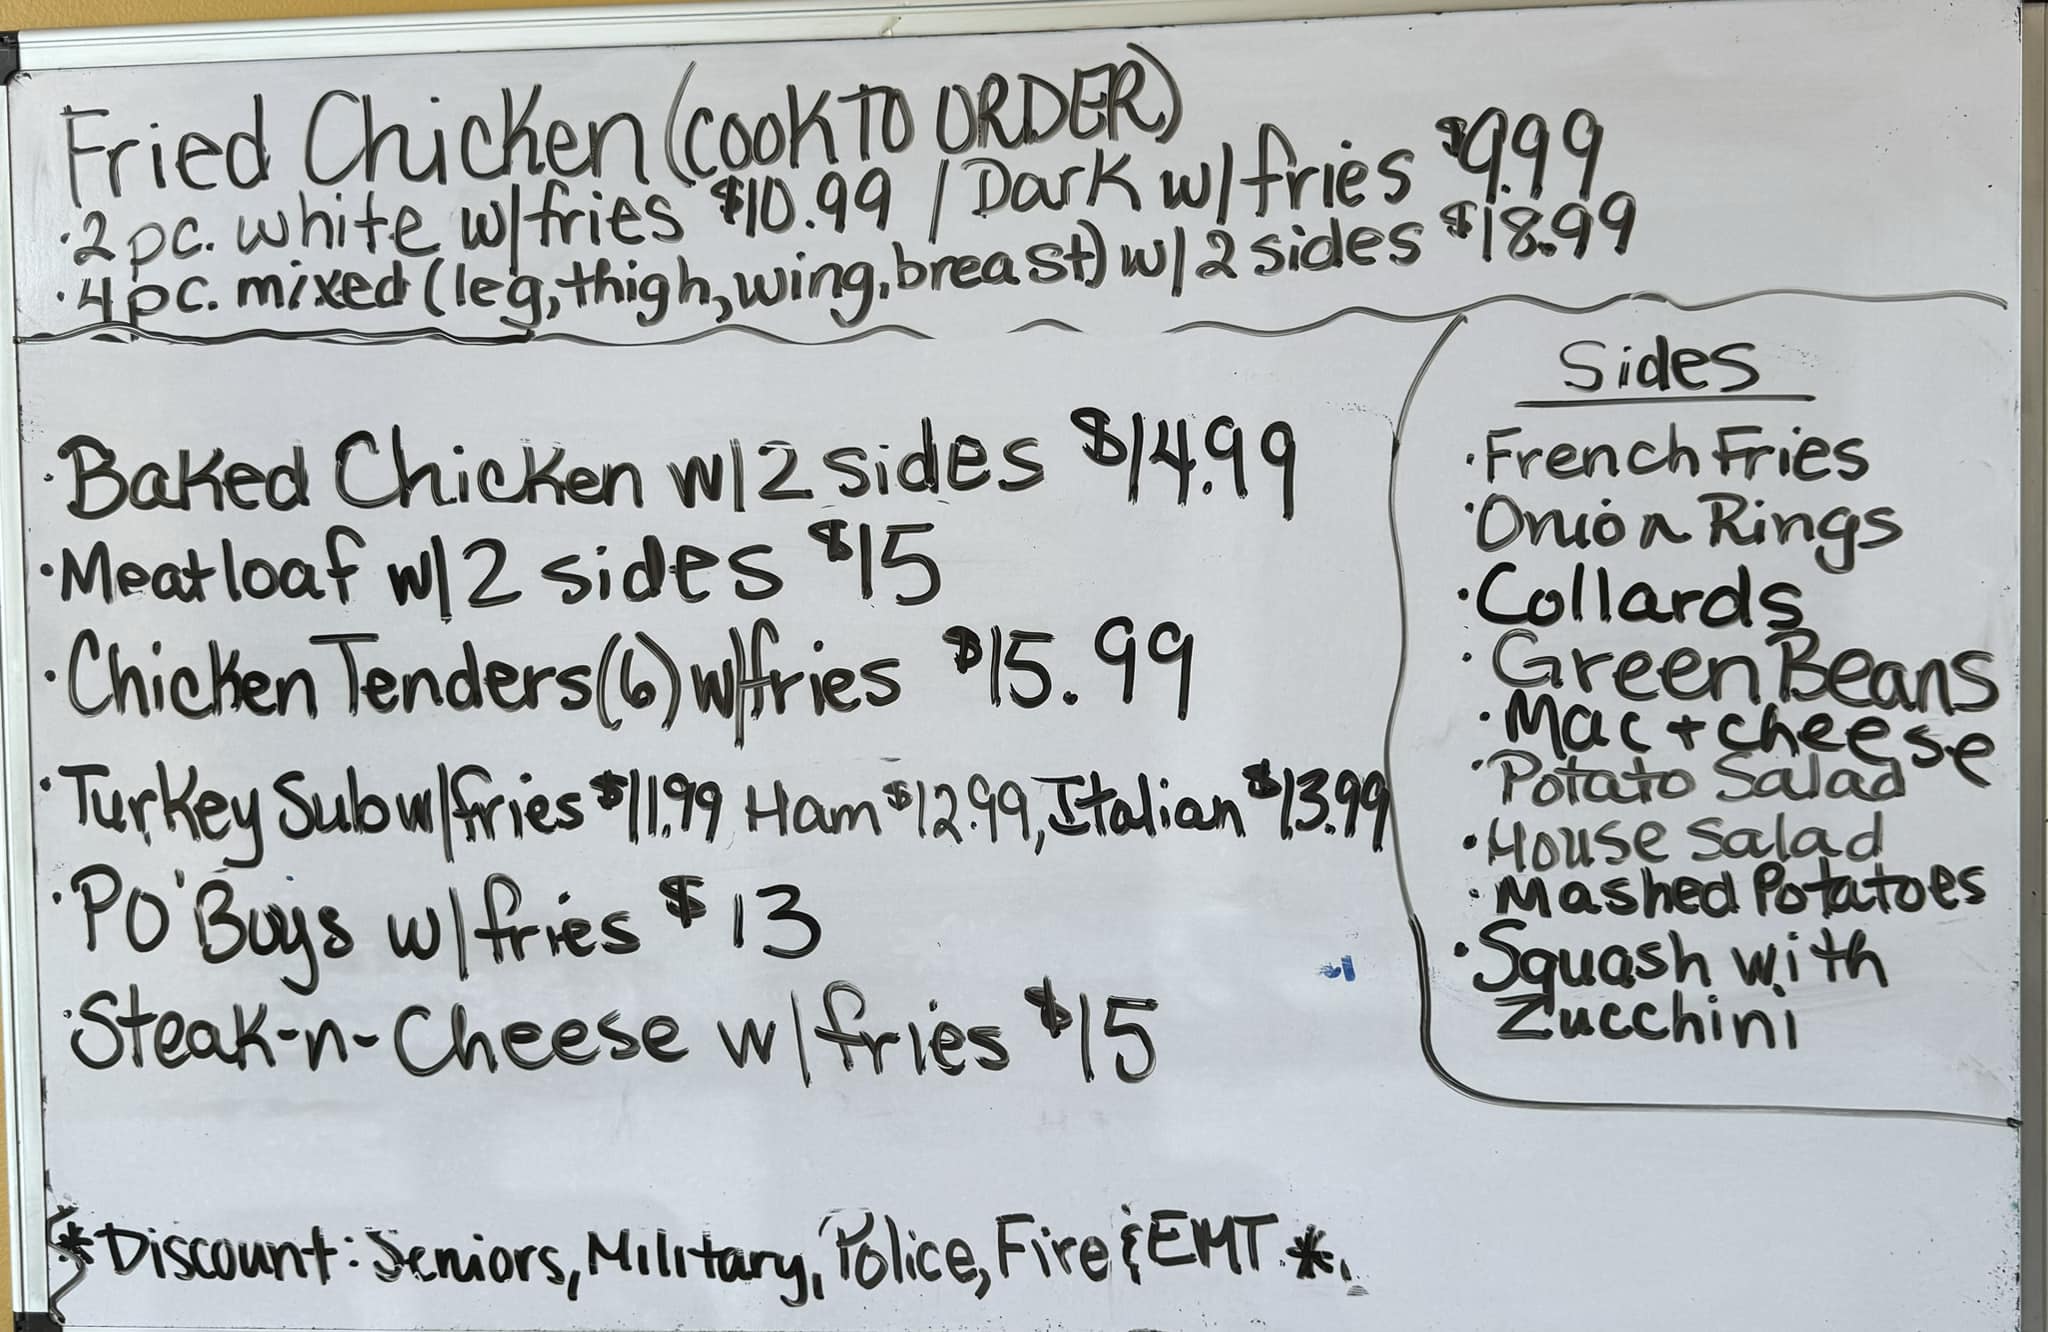 Fried Chicken (COOK TO ORDER)
·2 pc. white w/fries $10.99 / Dark w/fries $9.99
·4 pc. mixed (leg, thigh, wing, breast) w/ 2 sides $18.99
·Baked Chicken w/2 sides $14.99
·Meatloaf w/2 sides $15
·Chicken Tenders (6) w/fries $15.99
·Turkey Sub w/fries $11.99 Ham $12.99, Italian $13.99
·PO'Boys w/fries $13
·Steak-n-Cheese w/fries $15
Sides
·French Fries
·Onion Rings
·Collards
·Green Beans
·Mac + cheese
·Potato Salad
·House Salad
·Mashed Potatoes
·Squash with
Zucchini
*Discount: Seniors, Military, Police, Fire & EMT.*